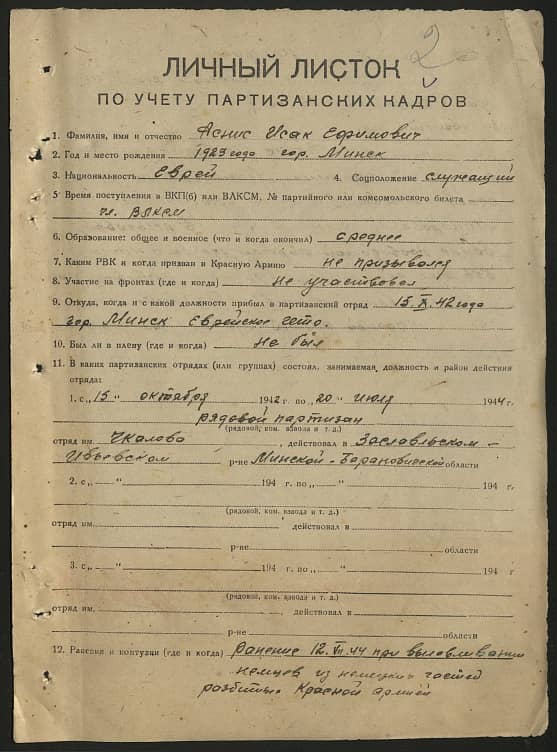 2
ЛИЧНЫЙ ЛИСТОК
ПО УЧЕТУ ПАРТИЗАНСКИХ КАДРОВ
1. Фамилия, имя и отчество Аснис Исак Ефимович
2. Год и место рождения 1923 года гор. Минск
3. Национальность Еврей 4. Соцположение служащий
5 Время поступления в ВКП(б) или ВЛКСМ, № партийного или комсомольского билета
чл. ВЛКСМ
6. Образование: общее и военное (что и когда окончил) среднее
7. Каким РВК и когда призван в Красную Армию не призывался
8. Участие на фронтах (где и когда) Не участвовал
9. Откуда, когда и с какой должности прибыл в партизанский отряд 15.X.42 года
гор. Минск Еврейское гето.
10. Был ли в плену (где и когда) Не был
11. В каких партизанских отрядах (или группах) состоял, занимаемая должность и район действия
отряда:
1. с „15" октября 1942 г. по „20" июля 1944 г.
рядовой партизан
(рядовой, ком. взвода и т. д.)
отряд им. Чкалова, действовал в Заславльском-
Ивьевском р-не Минской-Барановичской области
2. с „ " 194 г. по „ " 194 г.
(рядовой, ком. взвода и т. д.)
отряд им. действовал в
р-не области
3. с „ " 194 г. по „ " 194 г
(рядовой, ком. взвода и т. д.)
отряд им. , действовал в
р-не области
12. Ранения и контузии (где и когда) Ранение 12.VII.44 при вылавливании
немцев из немецких частей
разбитых Красной армией